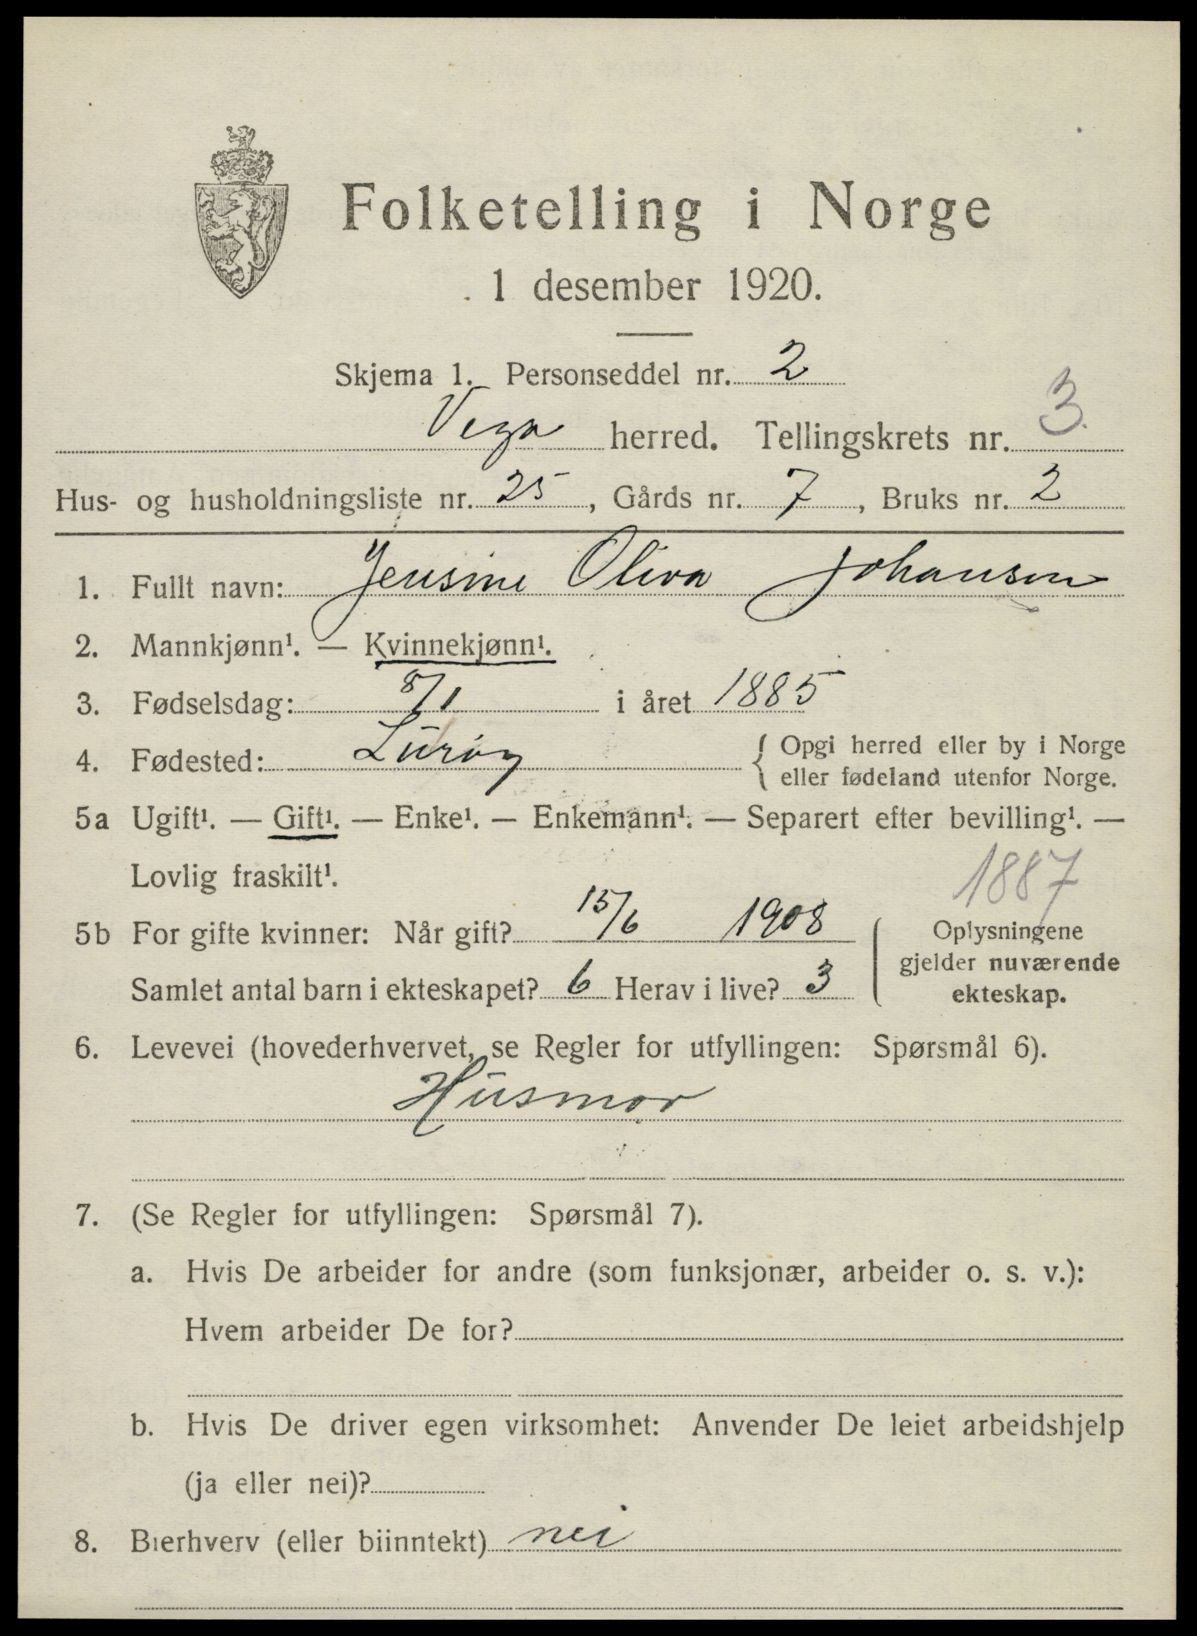 Folketelling i Norge
1 desember 1920.
Skjema 1. Personseddel nr. 2
Vega herred. Tellingskrets nr. 3
Hus- og husholdningsliste nr. 25, Gårds nr. 7, Bruks nr. 2
1. Fullt navn: Jensine Oliva Johansen
2. Mannkjønn¹. — Kvinnekjønn¹.
3. Fødselsdag: 8/1 i året 1885
4. Fødested: Lurøy { Opgi herred eller by i Norge
eller fødeland utenfor Norge.
5a Ugift¹. — Gift¹. — Enke¹. — Enkemann¹. — Separert efter bevilling¹. —
Lovlig fraskilt¹. 1887
5b For gifte kvinner: Når gift? 15/6 1908
Samlet antal barn i ekteskapet? 6 Herav i live? 3
{ Oplysningene
gjelder nuværende
ekteskap.
6. Levevei (hovederhvervet, se Regler for utfyllingen: Spørsmål 6).
Husmor
7. (Se Regler for utfyllingen: Spørsmål 7).
a. Hvis De arbeider for andre (som funksjonær, arbeider o. s. v.):
Hvem arbeider De for?
b. Hvis De driver egen virksomhet: Anvender De leiet arbeidshjelp
(ja eller nei)?
8. Bierhverv (eller biinntekt) nei